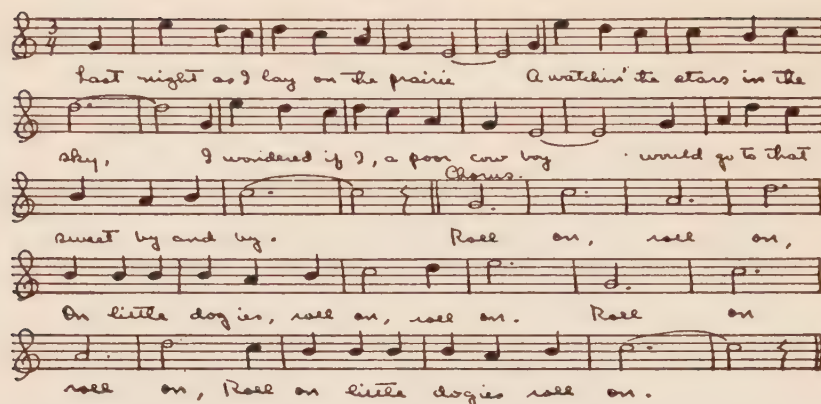 3 4
Last night as I lay on the prairie A watchin' the stars in the
sky, I wondered if I, a poor cow boy would go to that
Chorus.
sweet by and by. Roll on, roll on,
On little dogies, roll on, roll on. Roll on
roll on, Roll on little dogies roll on.